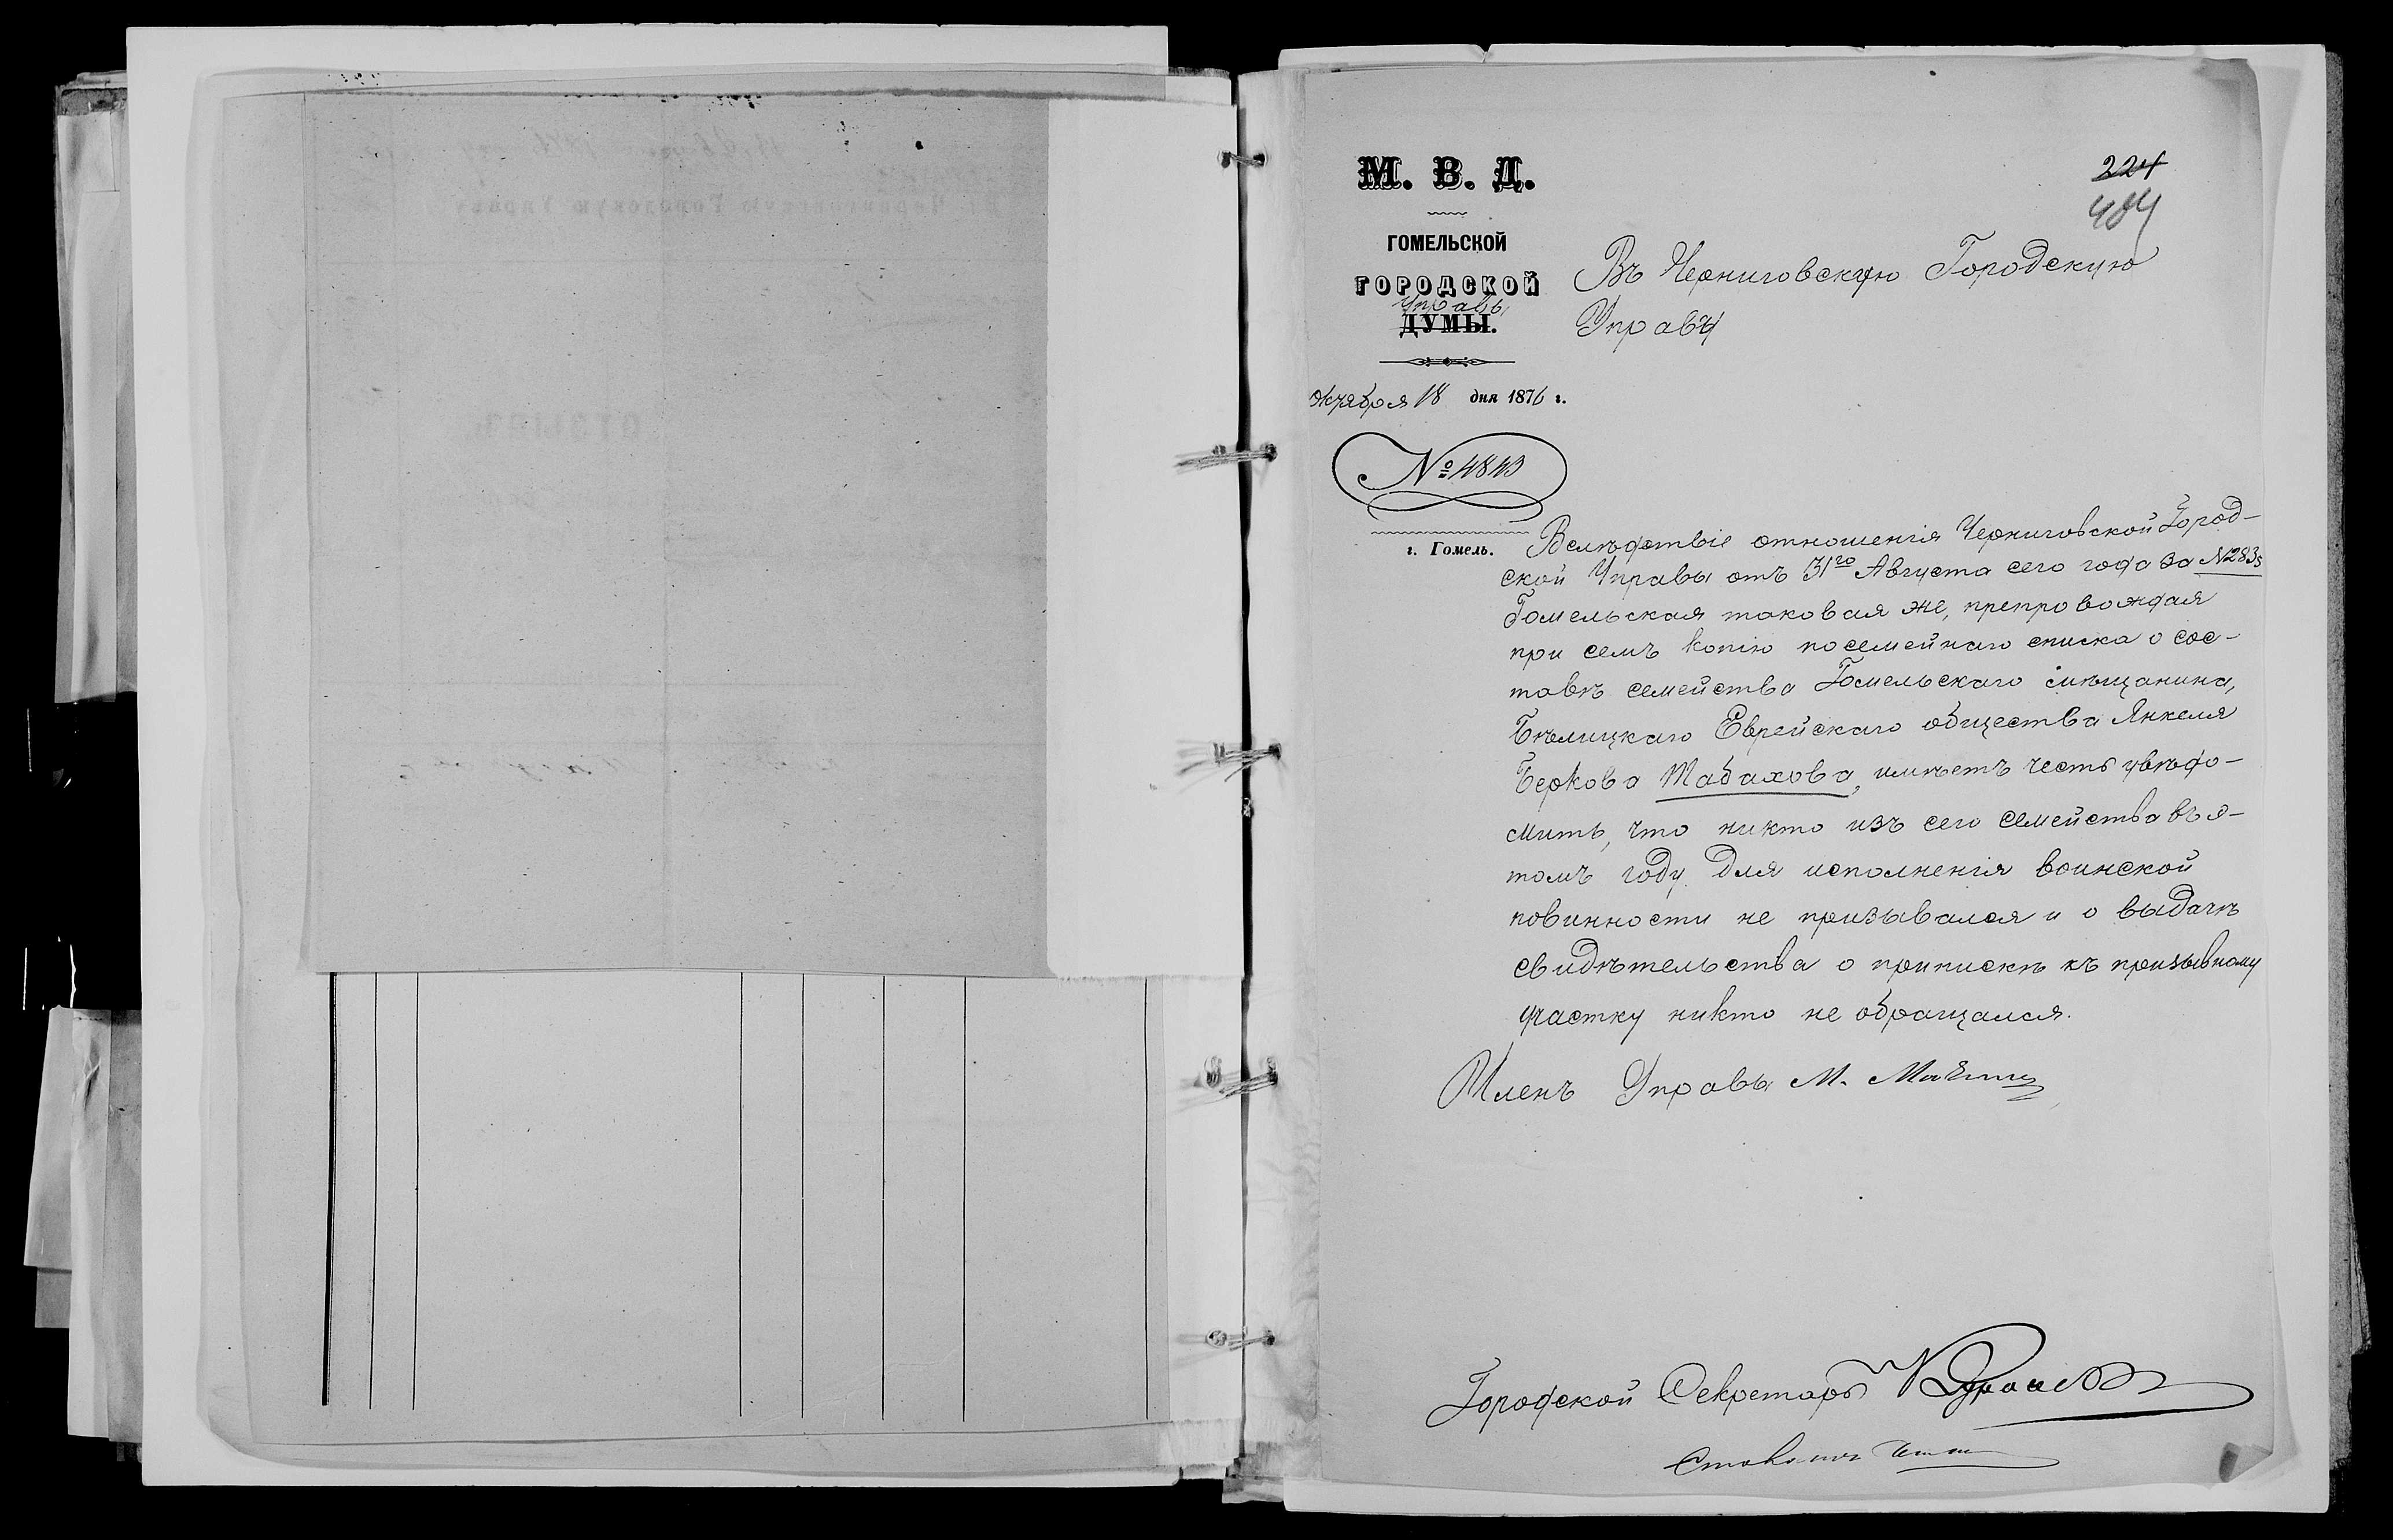 224
484
М. В. Д.
ГОМЕЛЬСКОЙ
ГОРОДСКОЙ
Управы
ДУМЫ.
Октября 18 дня 1876 г.
№ 4843
г. Гомель.
Въ Черниговскую Городскую
Управу
Вслѣдствіе отношенія Черниговской Город-
ской Управы отъ 31го Августа сего года за №2835
Гомельская таковая же, препровождая
при семъ копію посемейнаго списка о сос-
тавѣ семейства Гомельскаго мѣщанина,
Бѣлицкаго Еврейскаго общества Янкеля
Беркова Табахова, имѣетъ честь увѣдо-
мить, что никто изъ сего семейства въ э-
томъ году для исполненія воинской
повинности не призывался и о выдачѣ
свидѣтельства о припискѣ къ призывному
участку никто не обращался.
Членъ Управы М.
Городской Секретарь